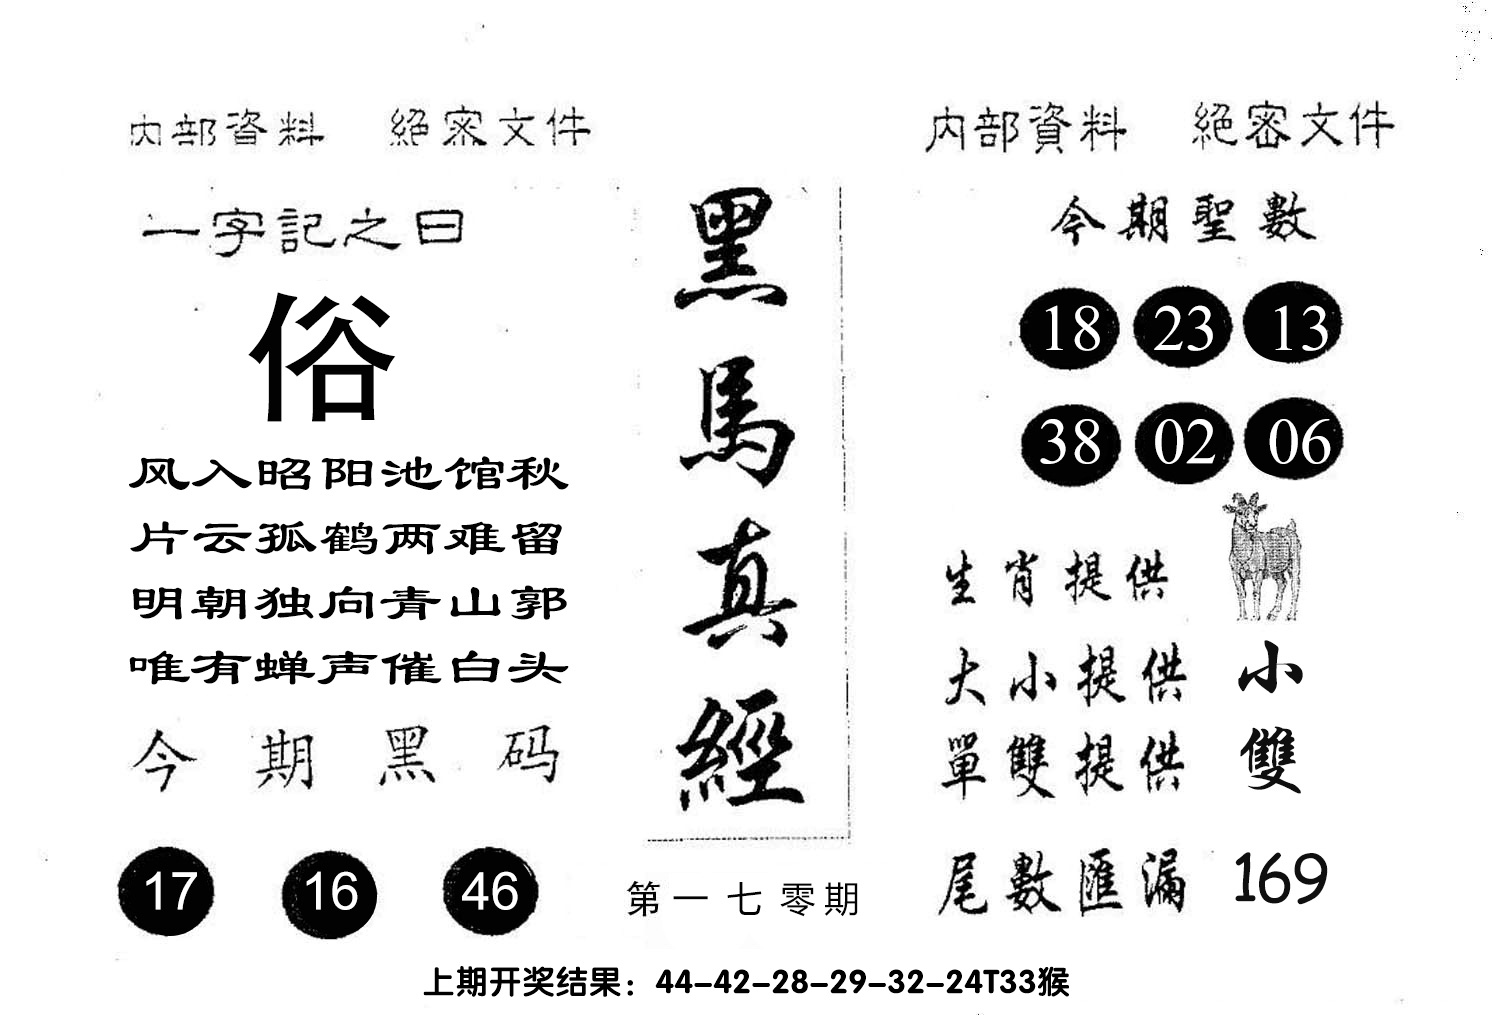 内部資料 絕密文件
一字記之曰
俗
风入昭阳池馆秋
片云孤鹤两难留
明朝独向青山郭
唯有蝉声催白头
今期黑码
17 16 46
黑馬真經
第一七零期
内部資料 絕密文件
今期聖數
18 23 13
38 02 06
生肖提供
大小提供 小
單雙提供 雙
尾數匯漏 169
上期开奖结果：44-42-28-29-32-24T33猴